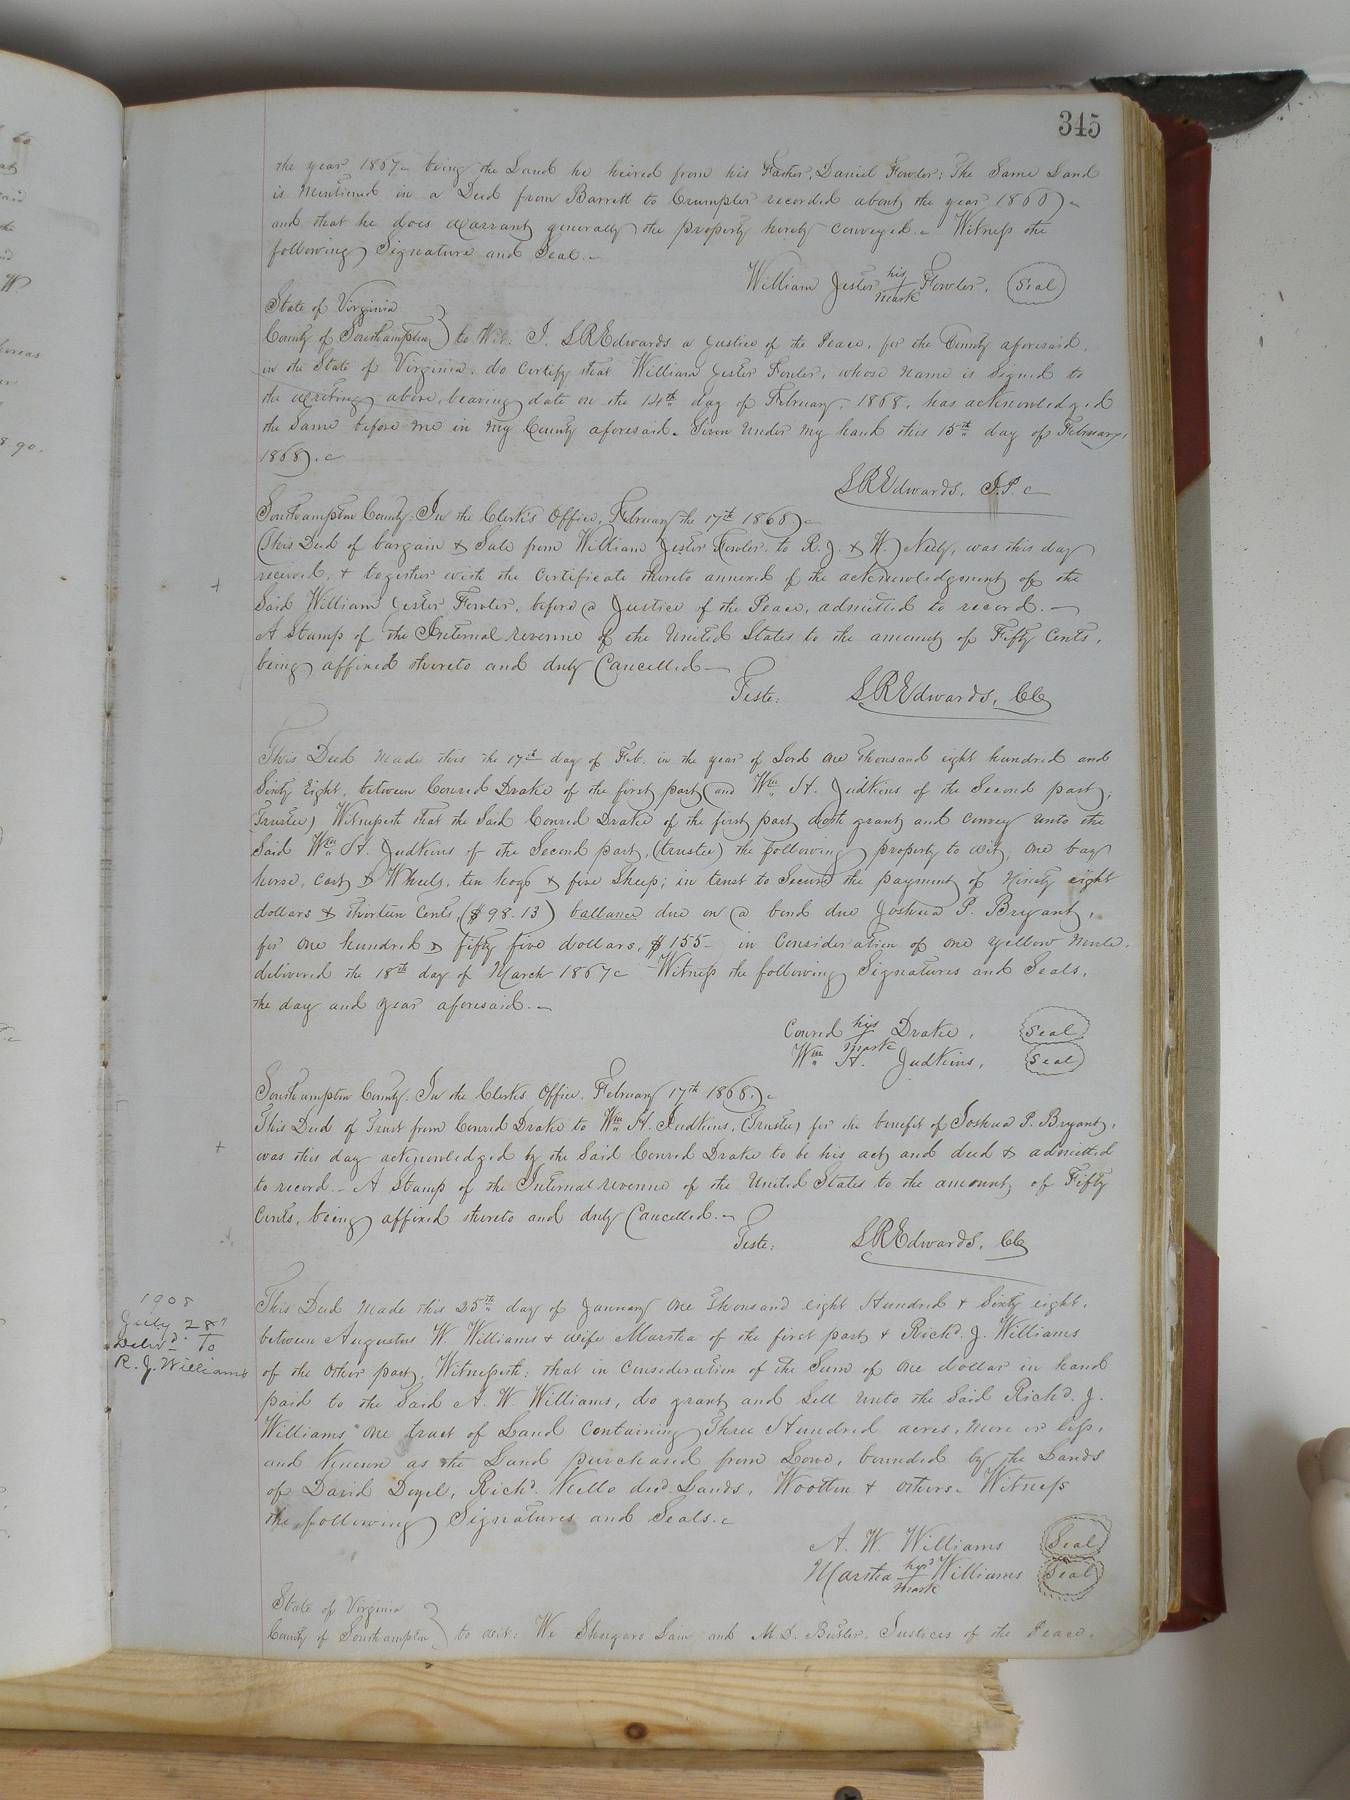 345
the year 1867 - being the Land he heired from his Father, Daniel Fowler; The Same Land
is Mentioned in a Deed from Barrett to Crumpler recorded about the year 1860) -
and that he does warrant generally the property hereby conveyed. - Witness the
following Signature and Seal. -
William Jester his mark Fowler. Seal
State of Virginia
County of Southampton } to Wit: I. L R Edwards a Justice of the Peace, for the County aforesaid,
in the State of Virginia, do certify that William Jester Fowler, whose name is signed to
the writing above, bearing date on the 14th day of February, 1868, has acknowledged
the same before me in my County aforesaid. Given under my hand this 15th day of February,
1868).
L R Edwards, J.P.
Southampton County. In the Clerk's Office, February the 17th 1868) -
This Deed of bargain & Sale from William Jester Fowler, to R. J. & W. Neely, was this day
received, & together with the Certificate thereto annexed of the acknowledgment of the
Said William Jester Fowler, before a Justice of the Peace, admitted to record. -
A Stamp of the Internal revenue of the United States to the amount of Fifty Cents,
being affixed thereto and duly Cancelled -
Teste: L R Edwards, CC
This Deed Made this the 17th day of Feb. in the year of Lord one thousand eight hundred and
Sixty Eight, between Conred Drake of the first part and Wm H. Judkins of the Second part,
Trustee) Witnesseth that the Said Conred Drake of the first part doth grant and convey unto the
Said Wm H. Judkins of the Second part, (trustee) the following property to wit, one bay
horse, cart & Wheels, ten hogs & five Sheep; in trust to Secure the payment of Ninety eight
dollars & thirteen Cents, ($98.13) ballance due on a bond due Joshua P. Bryant,
for one hundred & fifty five dollars, $155 - in Consideration of one yellow Mule,
delivered the 18th day of March 1867 - Witness the following Signatures and Seals,
the day and year aforesaid. -
Conred his mark Drake, Seal
Wm H. Judkins, Seal
Southampton County. In the Clerk's Office, February 17th 1868.) -
This Deed of Trust from Conred Drake to Wm H. Judkins, (Trustee) for the benefit of Joshua P. Bryant,
was this day acknowledged by the Said Conred Drake to be his act and deed & admitted
to record. - A Stamp of the Internal revenue of the United States to the amount of Fifty
Cents, being affixed thereto and duly Cancelled. -
Teste: L R Edwards, CC
1908
July 28
Delivd. To
R. J. Williams
This Deed Made this 25th day of January One Thousand eight Hundred & Sixty eight,
between Augustus W. Williams & wife Marsha of the first part & Richd. J. Williams
of the other part, Witnesseth: that in Consideration of the Sum of one dollar in hand
paid to the Said A. W. Williams, do grant and Sell unto the Said Richd. J.
Williams one tract of Land Containing Three Hundred acres, More or less,
and Known as the Land purchased from Lowe, bounded by the Lands
of David Doyel, Richd. Kello decd. Lands, Wootten & others. Witness
the following Signatures and Seals.
A. W. Williams Seal
Marsha her mark Williams Seal
State of Virginia
County of Southampton } to wit: We Shugars Lain and M. D. Butler, Justices of the Peace,